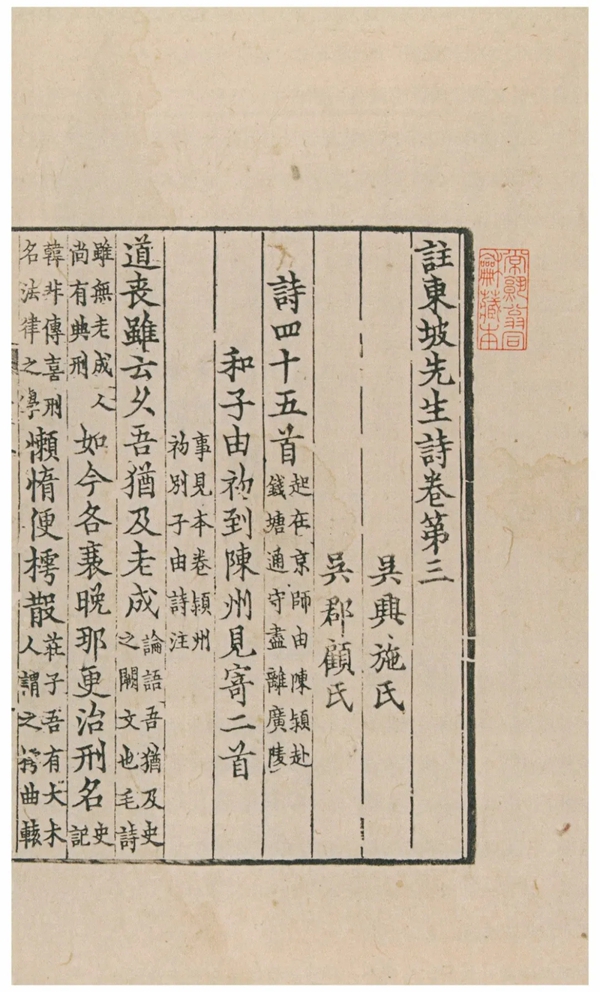 常熟翁同
龢藏本
註東坡先生詩卷第三
吳興施氏
吳郡顧氏
詩四十五首起在京師由陳潁赴錢塘通守盡離廣陵
和子由初到陳州見寄二首
事見本卷潁州初別子由詩注
道喪雖云久吾猶及老成論語吾猶及史之闕文也毛詩
雖無老成人尚有典刑如今各衰晚那更治刑名史記
韓非傳喜刑名法律之學懶惰便樗散莊子吾有大木人謂之樗曲轅